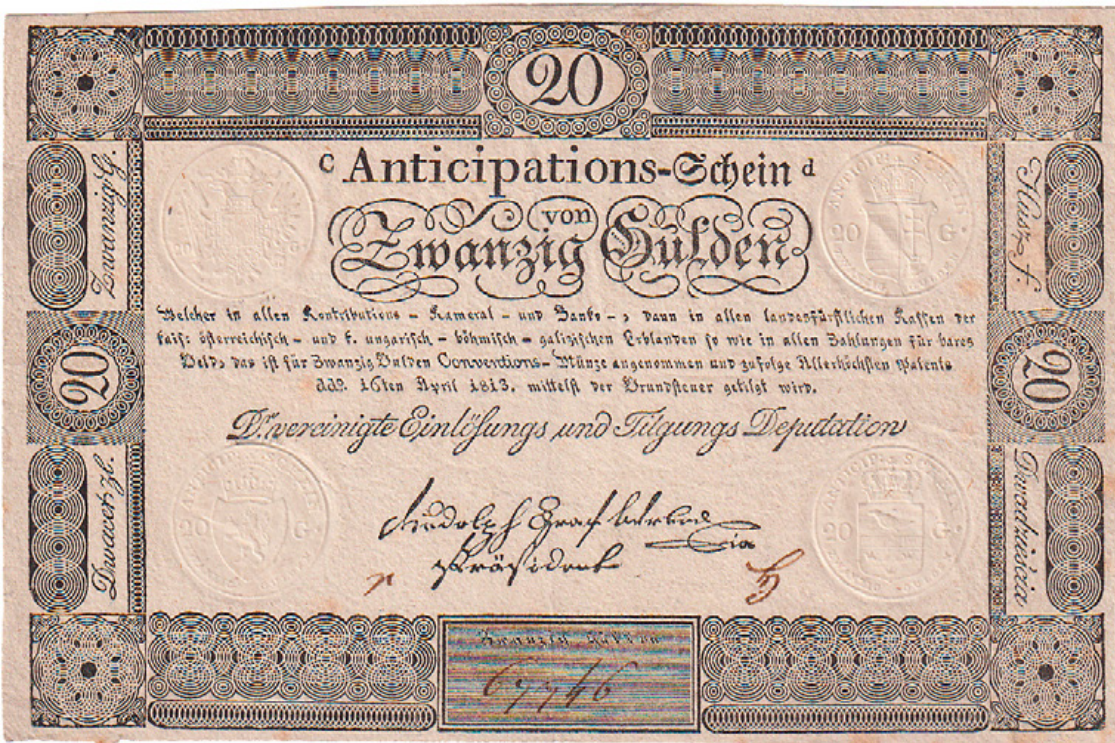 20
c Anticipations-Schein d
von
Zwanzig Gulden
Zwanzig G.
Húsz f.
20
20
Welcher in allen Kontributions - Kameral - und Banko -, dann in allen landesfürstlichen Kassen der
kais: österreichisch - und k. ungarisch - böhmisch - galizischen Erblanden so wie in allen Zahlungen für bares
Geld, das ist für Zwanzig Gulden Conventions-Münze angenommen und zufolge Allerhöchsten Patents
ddo. 16ten April 1813. mittelst der Grundsteuer getilgt wird.
Dr. vereinigte Einlösungs und Tilgungs Deputation
Dwacet zl.
Dwadzieścia
ANTICIP: SCHEIN
20 G.
ANTICIP: SCHEIN
20 G.
ANTICIP: SCHEIN
20 G.
Rudolph Graf
Präsident
Zwanzig Gulden
67746